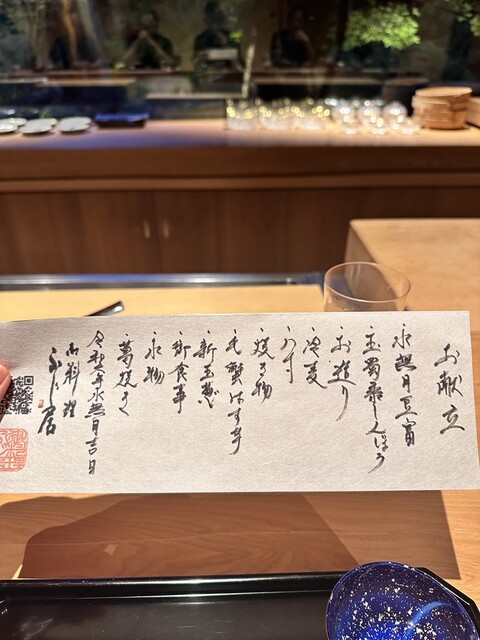 お献立
水無月豆富
玉蜀黍しんじょう
お造り
冷麦
お寿
焼き物
毛蟹はす芋
新玉葱
御食事
水物
葛焼き
水無月吉日
お料理
ふじ居